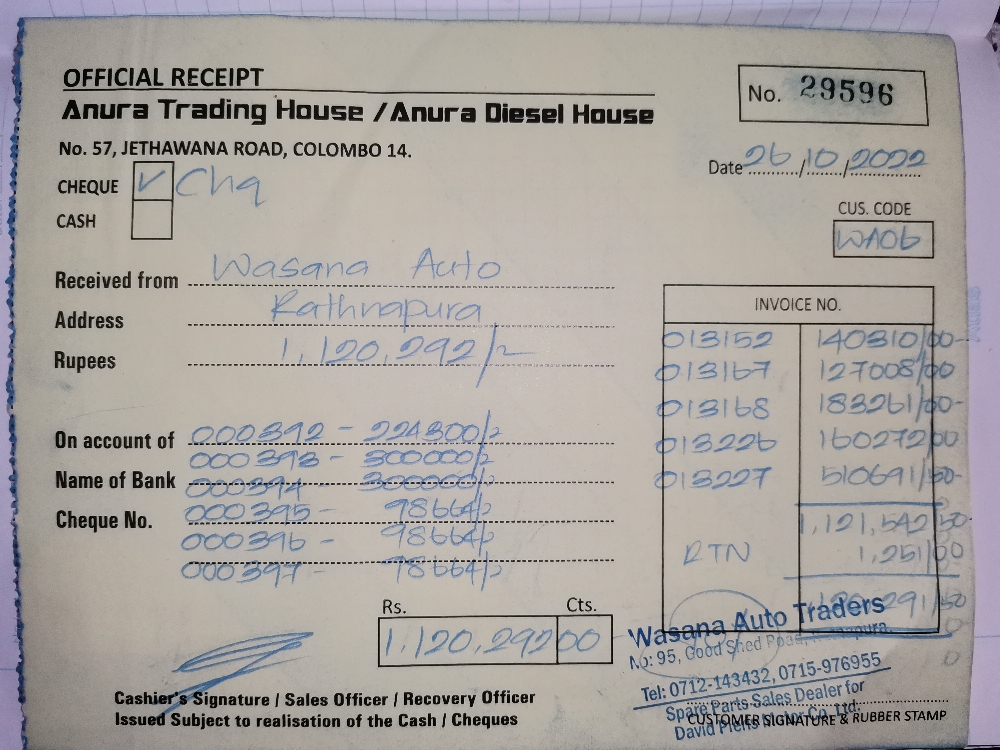 OFFICIAL RECEIPT
Anura Trading House / Anura Diesel House
No. 29596
No. 57, JETHAWANA ROAD, COLOMBO 14.
Date 26/10/2022
CHEQUE ✓ Chq
CASH
CUS. CODE
WA06
Received from Wasana Auto
Address Rathnapura
Rupees 1,120,292/-
INVOICE NO.
013152 140310/00-
013167 127008/00
013168 183261/00-
013226 160272/00
013227 510691/50-
1,121,542/50-
RTN 1,251/00
On account of 000392 - 224300/-
000393 - 300000/-
Name of Bank 000394 - 300000/-
Cheque No. 000395 - 98664/-
000396 - 98664/-
000397 - 98664/-
Rs. Cts.
1,120,292 00
Wasana Auto Traders
No: 95, Good Shed Road,
Tel: 0712-143432, 0715-976955
Spare Parts Sales Dealer for
David Pieris Motor Co. Ltd.
Cashier's Signature / Sales Officer / Recovery Officer
Issued Subject to realisation of the Cash / Cheques
CUSTOMER SIGNATURE & RUBBER STAMP